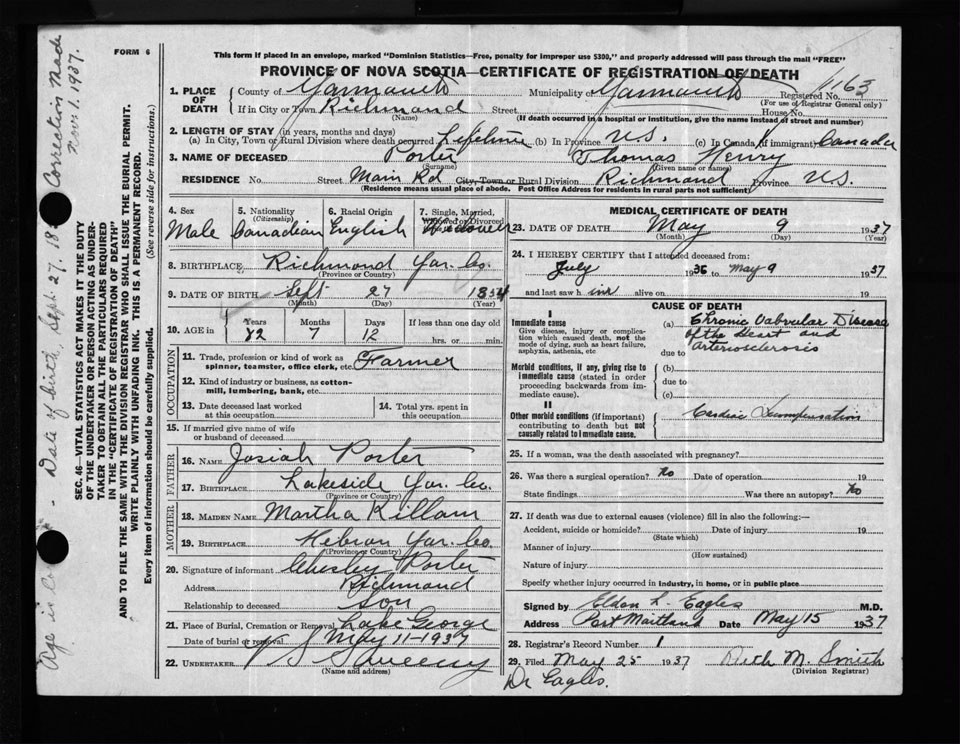 FORM 6
This form if placed in an envelope, marked "Dominion Statistics—Free, penalty for improper use $300," and properly addressed will pass through the mail "FREE"
PROVINCE OF NOVA SCOTIA—CERTIFICATE OF REGISTRATION OF DEATH
1. PLACE OF DEATH County of Yarmouth Municipality of Yarmouth Registered No. 1163
(For use of Registrar General only)
If in City or Town Richmond Street House No.
(Name) (If death occurred in a hospital or institution, give the name instead of street and number)
2. LENGTH OF STAY (in years, months and days)
(a) In City, Town or Rural Division where death occurred Lifetime (b) In Province N.S. (c) In Canada (if immigrant) Canada
3. NAME OF DECEASED Porter Thomas Henry
(Surname) (Given name or names)
RESIDENCE No. Street Main Rd City, Town or Rural Division Richmond Province N.S.
(Residence means usual place of abode. Post Office Address for residents in rural parts not sufficient)
4. Sex Male
5. Nationality (Citizenship) Canadian
6. Racial Origin English
7. Single, Married, Widowed or Divorced Widower
8. BIRTHPLACE Richmond Yar. Co.
(Province or Country)
9. DATE OF BIRTH Sept 27 1854
(Month) (Day) (Year)
10. AGE in Years Months Days If less than one day old
82 7 12 hrs. or min.
OCCUPATION
11. Trade, profession or kind of work as spinner, teamster, office clerk, etc. Farmer
12. Kind of industry or business, as cotton-mill, lumbering, bank, etc.
13. Date deceased last worked at this occupation
14. Total yrs. spent in this occupation
15. If married give name of wife or husband of deceased
FATHER
16. NAME Josiah Porter
17. BIRTHPLACE Lakeside Yar. Co.
(Province or Country)
MOTHER
18. MAIDEN NAME Martha Killam
19. BIRTHPLACE Hebron Yar. Co.
(Province or Country)
20. Signature of informant Chesley Porter
Address Richmond
Relationship to deceased Son
21. Place of Burial, Cremation or Removal Lake George
Date of burial or removal May 11-1937
22. UNDERTAKER Sweeny
(Name and address)
MEDICAL CERTIFICATE OF DEATH
23. DATE OF DEATH May 9 1937
(Month) (Day) (Year)
24. I HEREBY CERTIFY that I attended deceased from:
July 1936 to May 9 1937
and last saw him alive on 19
CAUSE OF DEATH
I
Immediate cause
Give disease, injury or complication which caused death, not the mode of dying, such as heart failure, asphyxia, asthenia, etc
(a) Chronic Valvular Disease
of the Heart and
due to Arteriosclerosis
Morbid conditions, if any, giving rise to immediate cause (stated in order proceeding backwards from immediate cause).
(b)
due to
(c)
II
Other morbid conditions (if important) contributing to death but not causally related to immediate cause.
Cardiac Decompensation
25. If a woman, was the death associated with pregnancy?
26. Was there a surgical operation? No Date of operation 19
State findings Was there an autopsy? No
27. If death was due to external causes (violence) fill in also the following:—
Accident, suicide or homicide? Date of injury 19
(State which)
Manner of injury
(How sustained)
Nature of injury
Specify whether injury occurred in industry, in home, or in public place
Signed by Eldon L. Eagles M.D.
Address Port Maitland Date May 15 1937
28. Registrar's Record Number 1
29. Filed May 25 1937 M. Smith
(Division Registrar)
Dr Eagles.
SEC. 46—VITAL STATISTICS ACT MAKES IT THE DUTY
OF THE UNDERTAKER OR PERSON ACTING AS UNDERTAKER
TO OBTAIN ALL THE PARTICULARS REQUIRED
IN THE "CERTIFICATE OF REGISTRATION OF DEATH"
AND TO FILE THE SAME WITH THE DIVISION REGISTRAR WHO SHALL ISSUE THE BURIAL PERMIT.
WRITE PLAINLY WITH UNFADING INK. THIS IS A PERMANENT RECORD.
Every item of information should be carefully supplied. (See reverse side for instructions.)
Age is - Date of birth, Sept. 27. 18 Correction Made
Nov. 1. 1937.